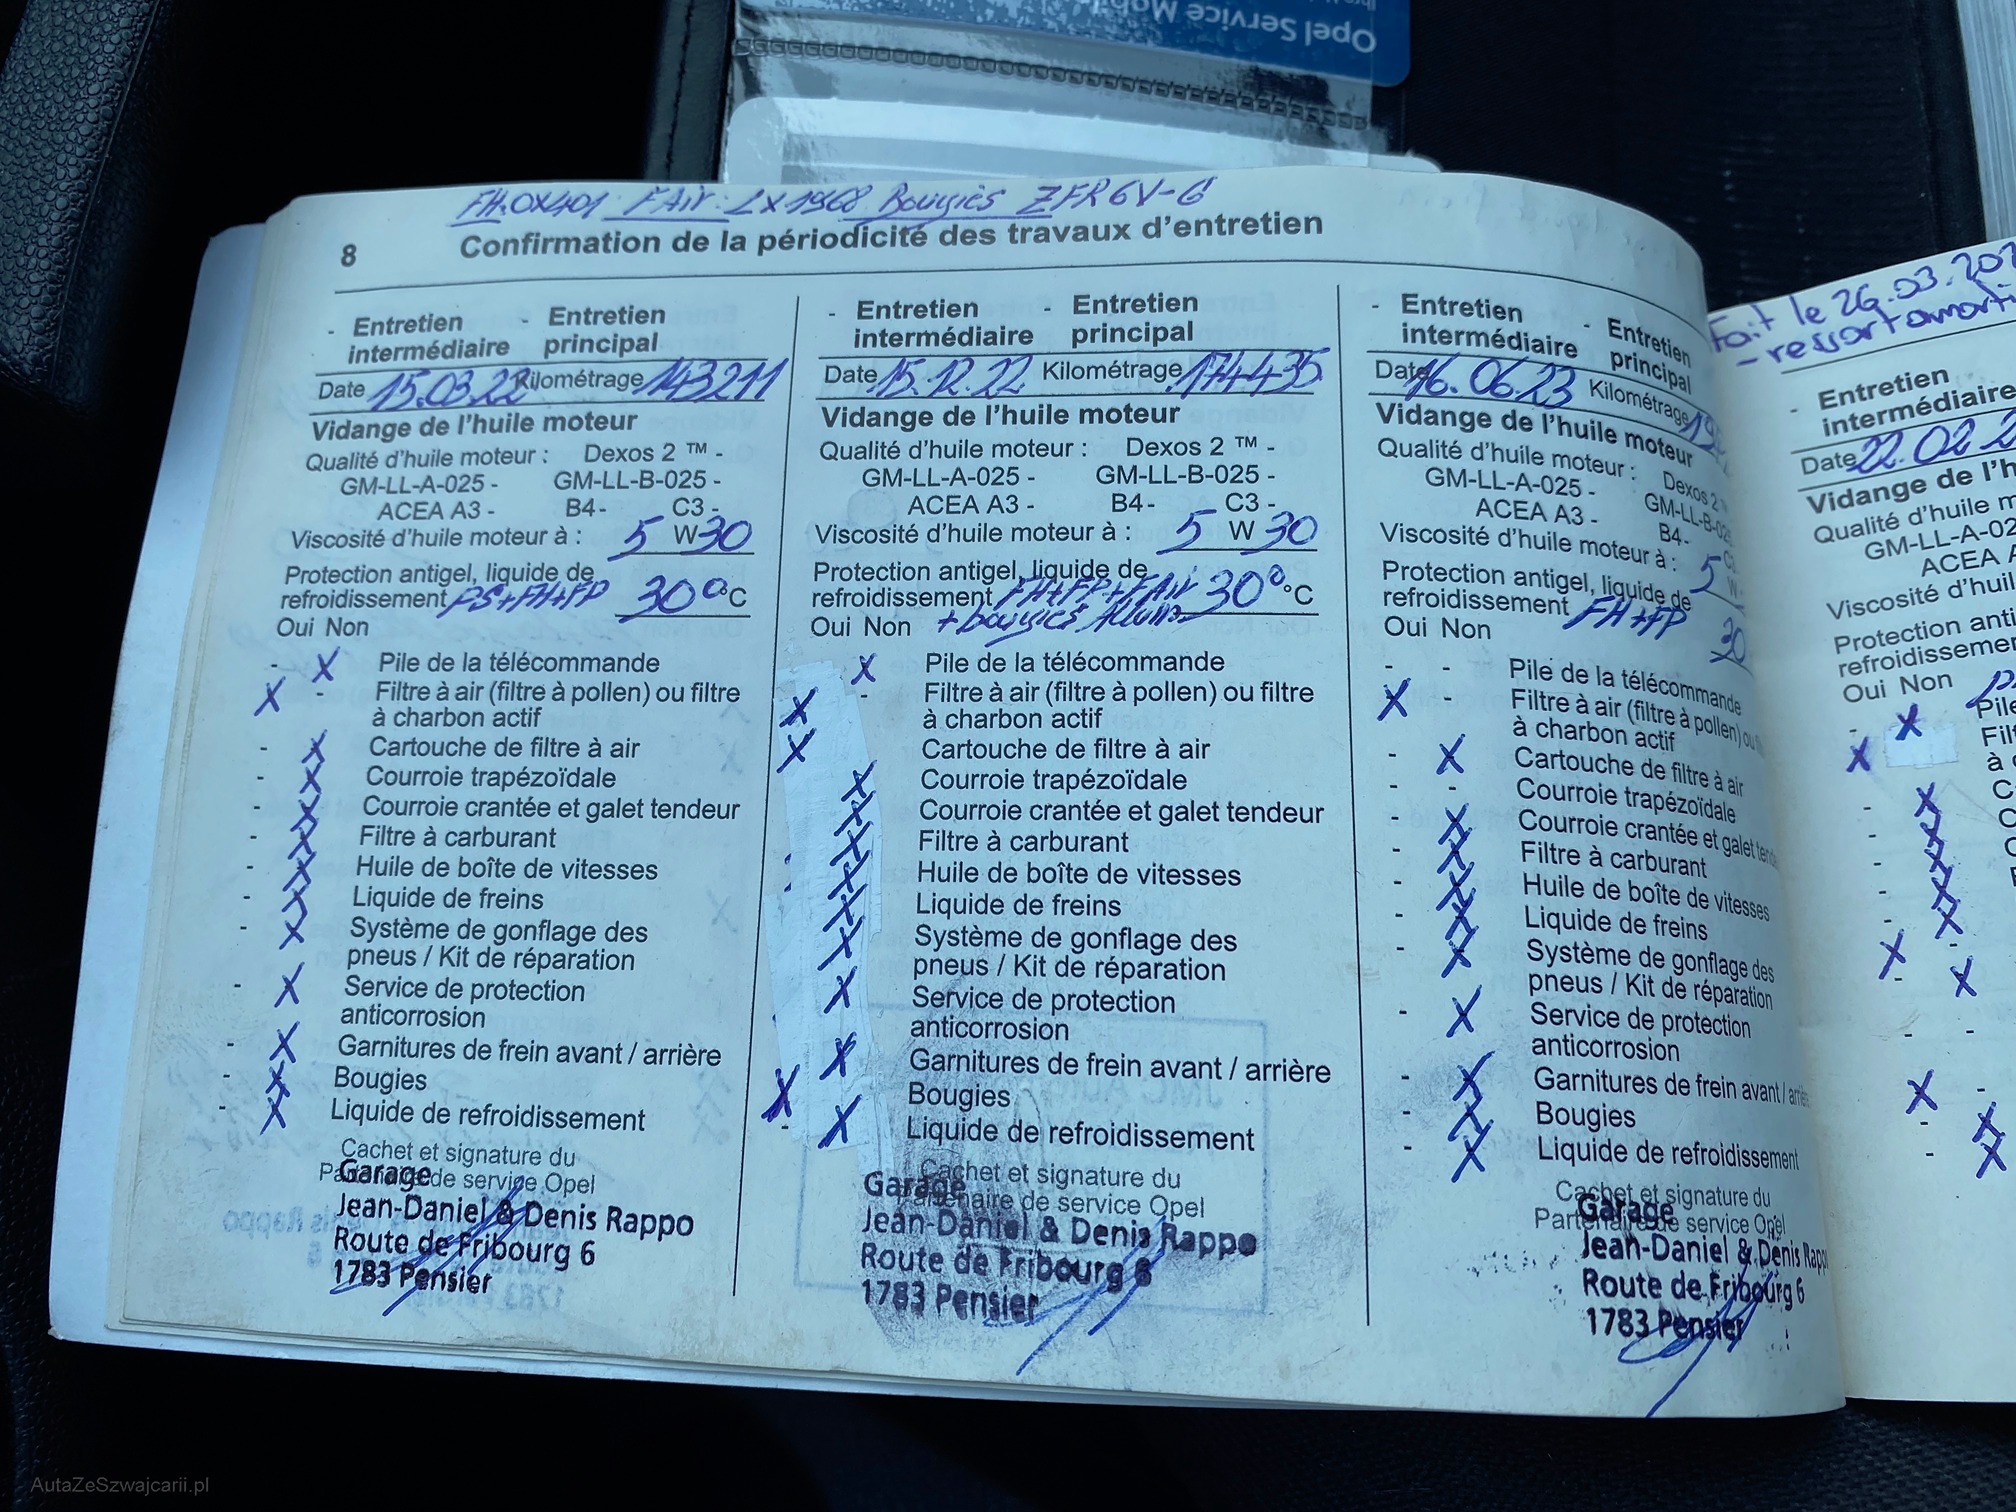 Opel Service Mobil
FH:OX401 FAir: LX1968 Bougies ZFR6V-G
8 Confirmation de la périodicité des travaux d'entretien
- Entretien intermédiaire - Entretien principal
Date 15.03.22 Kilométrage 143211
Vidange de l'huile moteur
Qualité d'huile moteur : Dexos 2 ™ -
GM-LL-A-025 - GM-LL-B-025 -
ACEA A3 - B4- C3 -
Viscosité d'huile moteur à : 5 W 30
Protection antigel, liquide de
refroidissement PS+FH+FP 30° °C
Oui Non
- X Pile de la télécommande
X - Filtre à air (filtre à pollen) ou filtre
à charbon actif
- X Cartouche de filtre à air
- X Courroie trapézoïdale
- X Courroie crantée et galet tendeur
- X Filtre à carburant
- X Huile de boîte de vitesses
- X Liquide de freins
- X Système de gonflage des
pneus / Kit de réparation
- X Service de protection
anticorrosion
- X Garnitures de frein avant / arrière
- X Bougies
- X Liquide de refroidissement
Cachet et signature du
Partenaire de service Opel
Garage
Jean-Daniel & Denis Rappo
Route de Fribourg 6
1783 Pensier
- Entretien intermédiaire - Entretien principal
Date 15.12.22 Kilométrage 174435
Vidange de l'huile moteur
Qualité d'huile moteur : Dexos 2 ™ -
GM-LL-A-025 - GM-LL-B-025 -
ACEA A3 - B4- C3 -
Viscosité d'huile moteur à : 5 W 30
Protection antigel, liquide de
refroidissement FH+FP+FAir 30° °C
Oui Non + bougies
X Pile de la télécommande
X - Filtre à air (filtre à pollen) ou filtre
à charbon actif
X Cartouche de filtre à air
X Courroie trapézoïdale
X Courroie crantée et galet tendeur
- X Filtre à carburant
- X Huile de boîte de vitesses
X Liquide de freins
X Système de gonflage des
pneus / Kit de réparation
X Service de protection
anticorrosion
X Garnitures de frein avant / arrière
X Bougies
- X Liquide de refroidissement
Cachet et signature du
Partenaire de service Opel
Garage
Jean-Daniel & Denis Rappo
Route de Fribourg 6
1783 Pensier
- Entretien intermédiaire - Entretien principal
Date 16.06.23 Kilométrage
Vidange de l'huile moteur
Qualité d'huile moteur : Dexos 2
GM-LL-A-025 - GM-LL-B-025
ACEA A3 - B4-
Viscosité d'huile moteur à : 5 W
Protection antigel, liquide de
refroidissement FH+FP 30
Oui Non
- - Pile de la télécommande
X - Filtre à air (filtre à pollen) ou
à charbon actif
- X Cartouche de filtre à air
- - Courroie trapézoïdale
- X Courroie crantée et galet
- X Filtre à carburant
- X Huile de boîte de vitesses
- X Liquide de freins
- X Système de gonflage des
pneus / Kit de réparation
- X Service de protection
anticorrosion
- X Garnitures de frein avant /
- X Bougies
- X Liquide de refroidissement
Cachet et signature du
Partenaire de service Opel
Garage
Jean-Daniel & Denis Rappo
Route de Fribourg 6
1783 Pensier
Fait le 26.03.202
- Entretien
intermédiaire
Date 22.02
Vidange de l'h
Qualité d'huile m
GM-LL-A-02
ACEA A
Viscosité d'huil
Protection anti
refroidissemen
Oui Non
Pile
Filt
à c
AutaZeSzwajcarii.pl